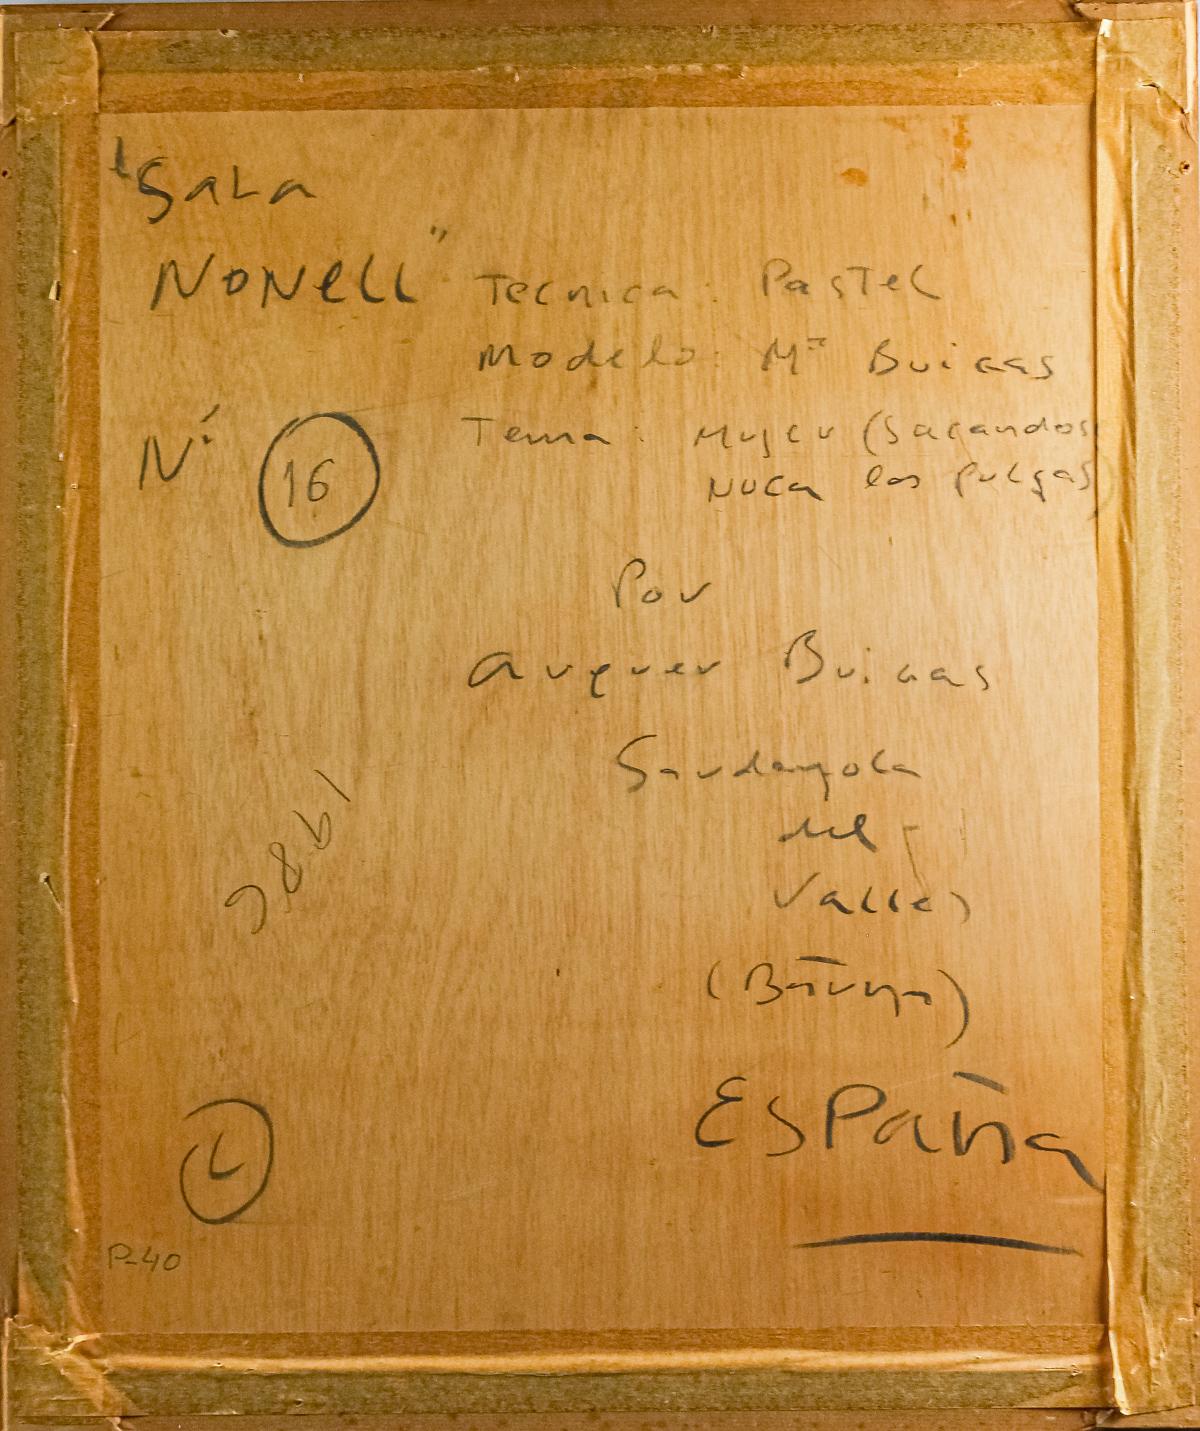 "Sala
Nonell"
Tecnica: Pastel
Modelo: Mª Buigas
Nº 16
Tema: Mujer (Sacandos
nuca las pulgas)
Por
auguer Buigas
Sardanyola
del
Valles
(Barña)
España
1986
L
P-40